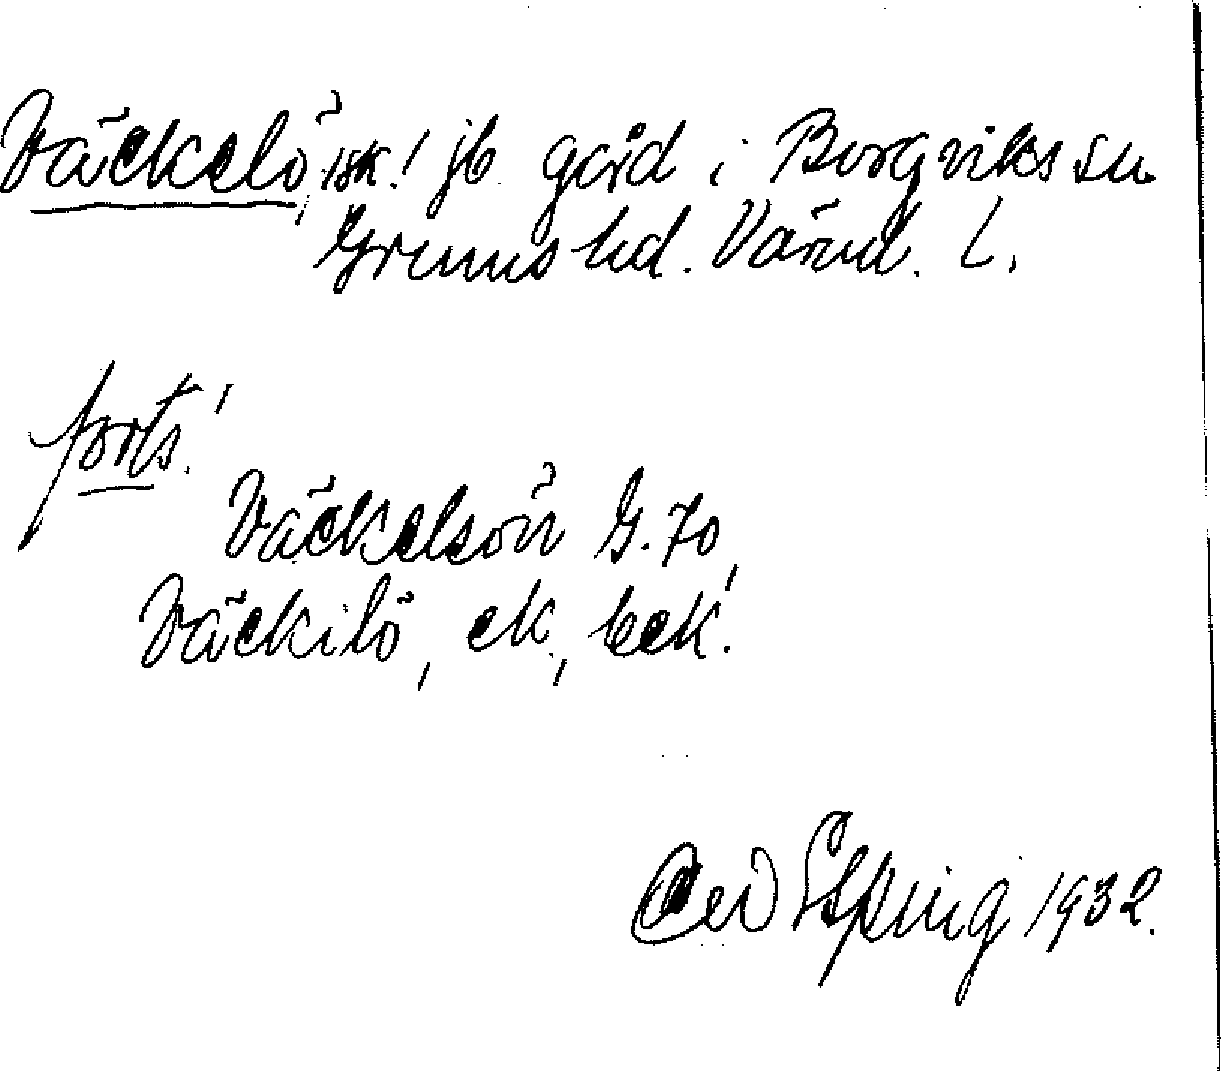 Väckelö, isk! jb. gård i Borgviks sn
Grums hd. Värml. L.
forts!
Väckelsön G. 70,
Väckilö, ek, bek!
Elfving 1932.